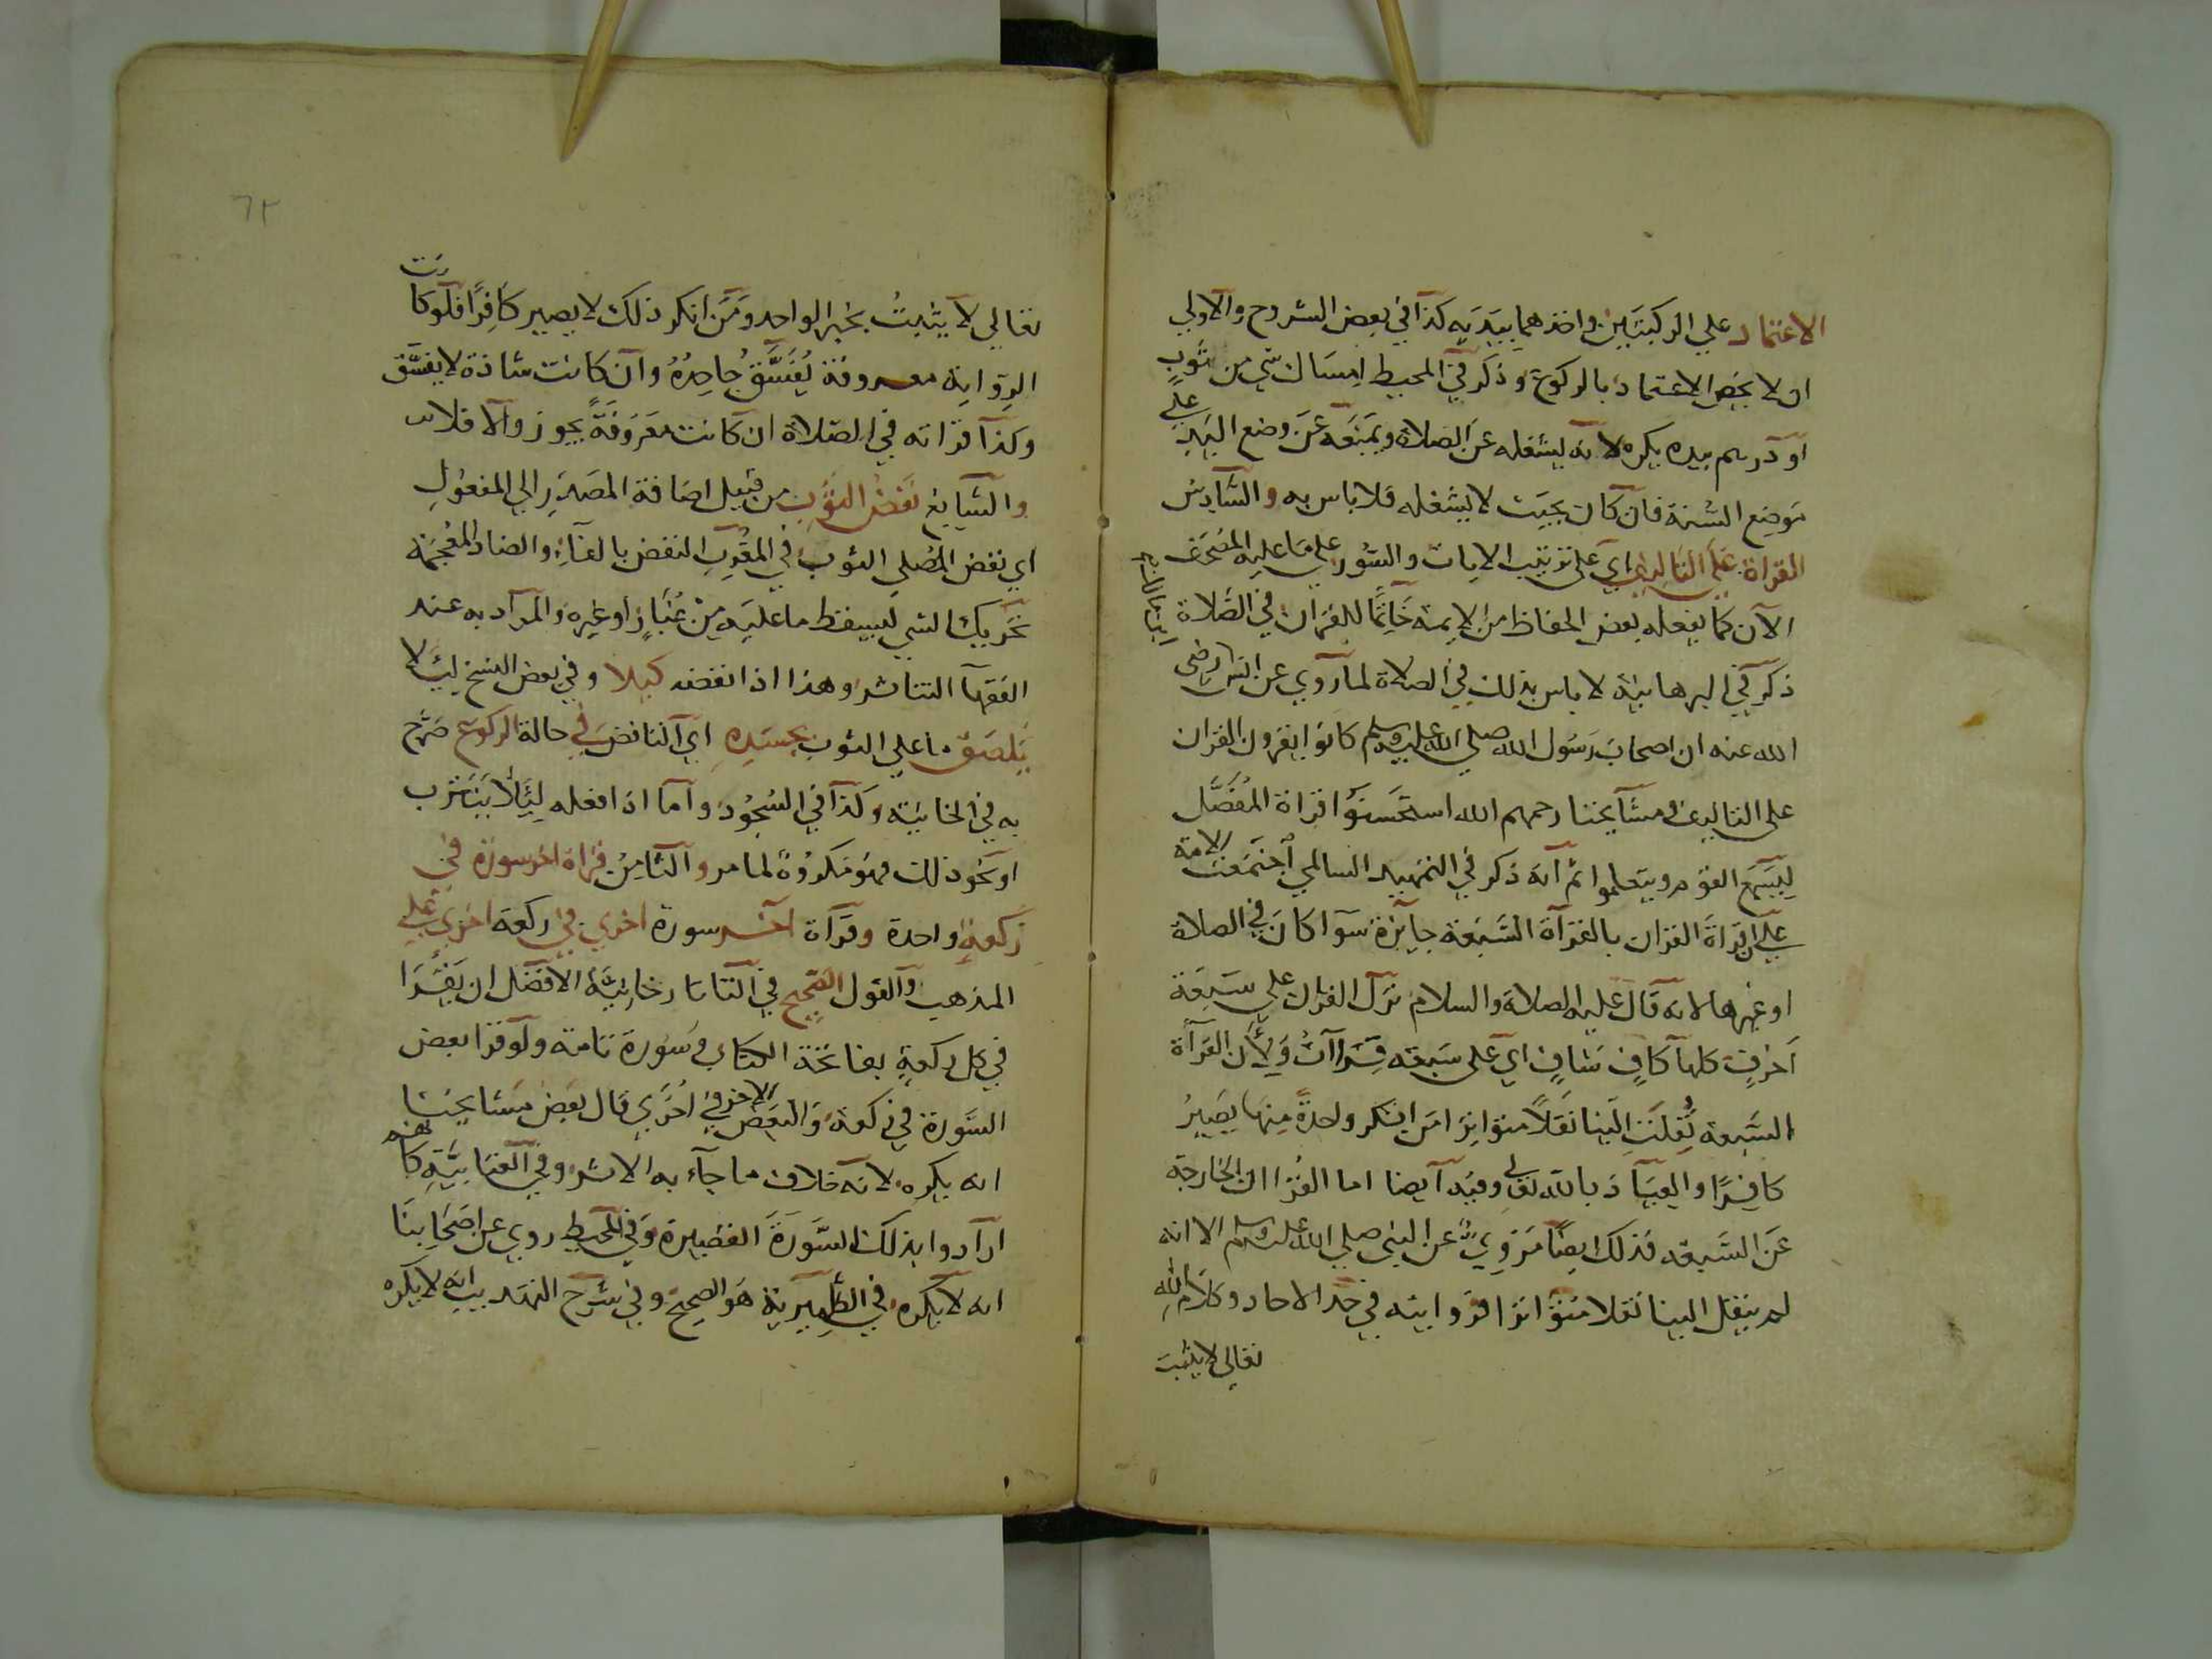 الاعتماد علي الركبتين واخذهما بيديه كذا في بعض الشروح والاولي
ان لا يخص الاعتماد بالركوع وذكر في المحيط امساك شي من ثوب
او درهم بيده يكره لانه يشغله عن الصلاة ويمنعه عن وضع اليد علي
موضع السنة فان كان بحيث لا يشغله فلا باس به والسادس
القراة علي التاليف اي علي ترتيب الايات والسور علي ما عليه المصحف
الآن كما يفعله بعض الحفاظ من الايمة خاتما للقران في الصلاة
ذكر في البرهانية لا باس بذلك في الصلاة لما روي عن انس رضي
الله عنه ان اصحاب رسول الله صلي الله عليه وسلم كانوا يقرون القران
علي التاليف ومشايخنا رحمهم الله استحسنوا قراة المفصل
ليسمع القوم ويتعلموا ثم انه ذكر في التمهيد السالمي اجتمعت الامة
علي ان قراة القران بالقراة السبعة جايزة سوا كان في الصلاة
او غيرها لانه قال عليه الصلاة والسلام نزل القران علي سبعة
احرف كلها كاف شاف اي علي سبعة قراات ولأن القراة
السبعة نقلت الينا نقلا متواترا من انكر واحدة منها يصير
كافرا والعياذ بالله تعالي وفيه ايضا اما القراان الخارجة
عن السبعة فذلك ايضا مروي عن النبي صلي الله عليه وسلم الا انه
لم ينقل الينا نقلا متواترا فروايته في حد الاحاد وكلام الله
تعالي لا يثبت
٦٢
تعالي لا يثبت بخبر الواحد ومن انكر ذلك لا يصير كافرا فلو كانت
الرواية معروفة يفسق جاحده وان كانت شاذة لا يفسق
وكذا قراته في الصلاة ان كانت معروفة يجوز والا فلا
والسابع نفض الثوب من قبيل اضافة المصدر الي المفعول
اي نفض المصلي الثوب في المغرب النفض بالفاء والضاد المعجمة
تحريك الشي ليسقط ما عليه من غبار او غيره والمراد به عند
الفقها التناثر وهذا اذا نفضه كيلا وفي بعض النسخ ليلا
يلصق ما علي الثوب بجسده اي النافض في حالة الركوع صرح
به في الخانية وكذا في السجود واما اذا فعله ليلا يتترب
او نحو ذلك فهو مكروه لما مر والثامن قراة اخر سورة في
ركعة واحدة وقراة اخر سورة اخري في ركعة اخري علي
المذهب والقول الصحيح في التاتارخانية الافضل ان يقرا
في كل ركعة بفاتحة الكتاب وسورة تامة ولو قرا بعض
السورة في ركعة والبعض الاخر في اخري قال بعض مشايخنا
انه يكره لانه خلاف ما جاء به الاثر وفي العتابية كانهم
ارادوا بذلك السورة القصيرة وفي المحيط روي عن اصحابنا
انه لا يكره في الظهيرية هو الصحيح وفي شرح التهذيب انه لا يكره